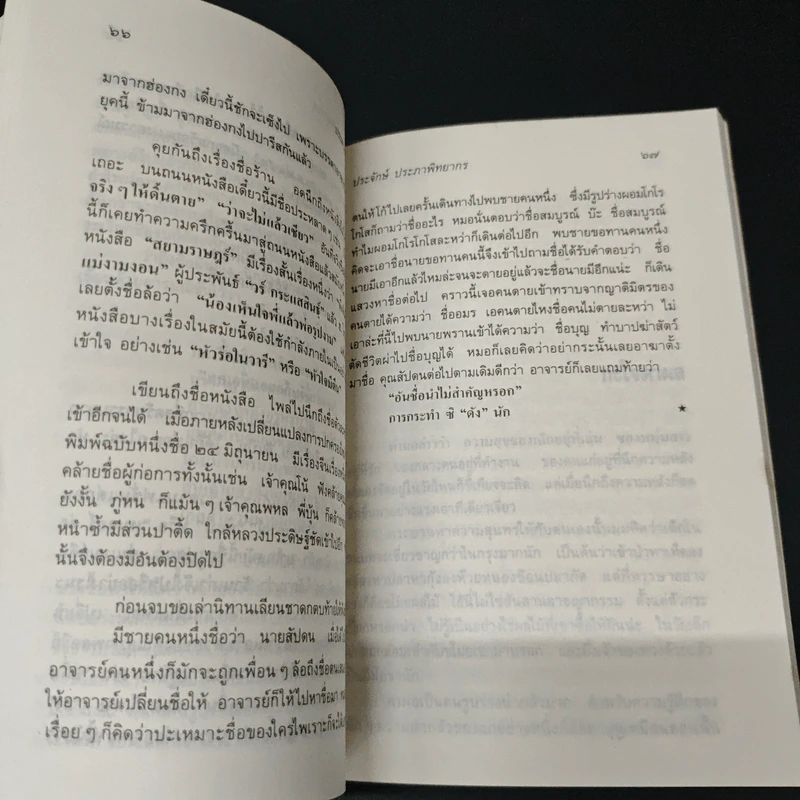 ๖๖
มาจากฮ่องกง เดี๋ยวนี้ชักจะเซ็งไป เพราะบรรดา
ยุคนี้ ข้ามมาจากฮ่องกงไปปารีสกันแล้ว
คุยกันถึงเรื่องชื่อร้าน อดนึกถึงหนังสือ
เถอะ บนถนนหนังสือเดี๋ยวนี้มีชื่อประหลาด ๆ เช่น
จริง ๆ ให้ดิ้นตาย” “ว่าจะไม่แล้วเชียว”
นี้ก็เคยทำความครึกครื้นมาสู่ถนนหนังสือแล้ว
หนังสือ “สยามราษฎร์” มีเรื่องสั้นเรื่องหนึ่งว่า
แม่งามงอน” ผู้ประพันธ์ “วร์ กระแสสินธุ์” แล้ว
เลยตั้งชื่อล้อว่า “น้องเห็นใจพี่แล้วพ่อรูปงาม”
หนังสือบางเรื่องในสมัยนี้ต้องใช้กำลังภายใน
เข้าใจ อย่างเช่น “หัวร่อในวารี” หรือ “หัวใจมีตีน”
เขียนถึงชื่อหนังสือ ไพล่ไปนึกถึงชื่อตัว
เข้าอีกจนได้ เมื่อภายหลังเปลี่ยนแปลงการปกครอง
พิมพ์ฉบับหนึ่งชื่อ ๒๔ มิถุนายน มีเรื่องจีนเรื่อง
คล้ายชื่อผู้ก่อการทั้งนั้นเช่น เจ้าคุณโน้ ฟังคล้าย
ยังงั้น ภู่หน ก็แม้น ๆ เจ้าคุณพหล พี่ปุ้น ก็คล้าย
หนำซ้ำมีส่วนปาติ้ด ใกล้หลวงประดิษฐ์ชัดเข้าไปอีก
นั้นจึงต้องมีอันต้องปิดไป
ก่อนจบขอเล่านิทานเลียนชาดกตบท้าย
มีชายคนหนึ่งชื่อว่า นายสัปดน
อาจารย์คนหนึ่งก็มักจะถูกเพื่อน ๆ ล้อถึงชื่อ
ให้อาจารย์เปลี่ยนชื่อให้ อาจารย์ก็ให้ไปหาชื่อมา
เรื่อย ๆ ก็คิดว่าปะเหมาะชื่อของใครไพเราะก็จะ
ประจักษ์ ประภาพิทยากร
๖๗
ตนให้โก้ไปเลยครั้นเดินทางไปพบชายคนหนึ่ง ซึ่งมีรูปร่างผอมโกโร
โกโสก็ถามว่าชื่ออะไร หมอนั่นตอบว่าชื่อสมบูรณ์ บ๊ะ ชื่อสมบูรณ์
ทำไมผอมโกโรโกโสละหว่าก็เดินต่อไปอีก พบชายขอทานคนหนึ่ง
คิดจะเอาชื่อนายขอทานคนนี้จึงเข้าไปถามชื่อได้รับคำตอบว่า ชื่อ
นายมีเอาอีกแล้วไหมล่ะจนจะตายอยู่แล้วจะชื่อนายมีอีกแน่ะ ก็เดิน
แสวงหาชื่อต่อไป คราวนี้เจอคนตายเข้าทราบจากญาติมิตรของ
คนตายได้ความว่า ชื่ออมร เอคนตายไหงชื่อคนไม่ตายละหว่า ไม่
เอาล่ะที่นี้ไปพบนายพรานเข้าได้ความว่า ชื่อบุญ ทำบาปฆ่าสัตว์
ตัดชีวิตผ่าไปชื่อบุญได้ หมอก็เลยคิดว่าอย่ากระนั้นเลยอาฆาตั้ง
มาชื่อ คุณสัปดนต่อไปตามเดิมดีกว่า อาจารย์ก็เลยแถมท้ายว่า
“อันชื่อน่าไม่สำคัญหรอก”
การกระทำ ซิ “ดัง” นัก ★